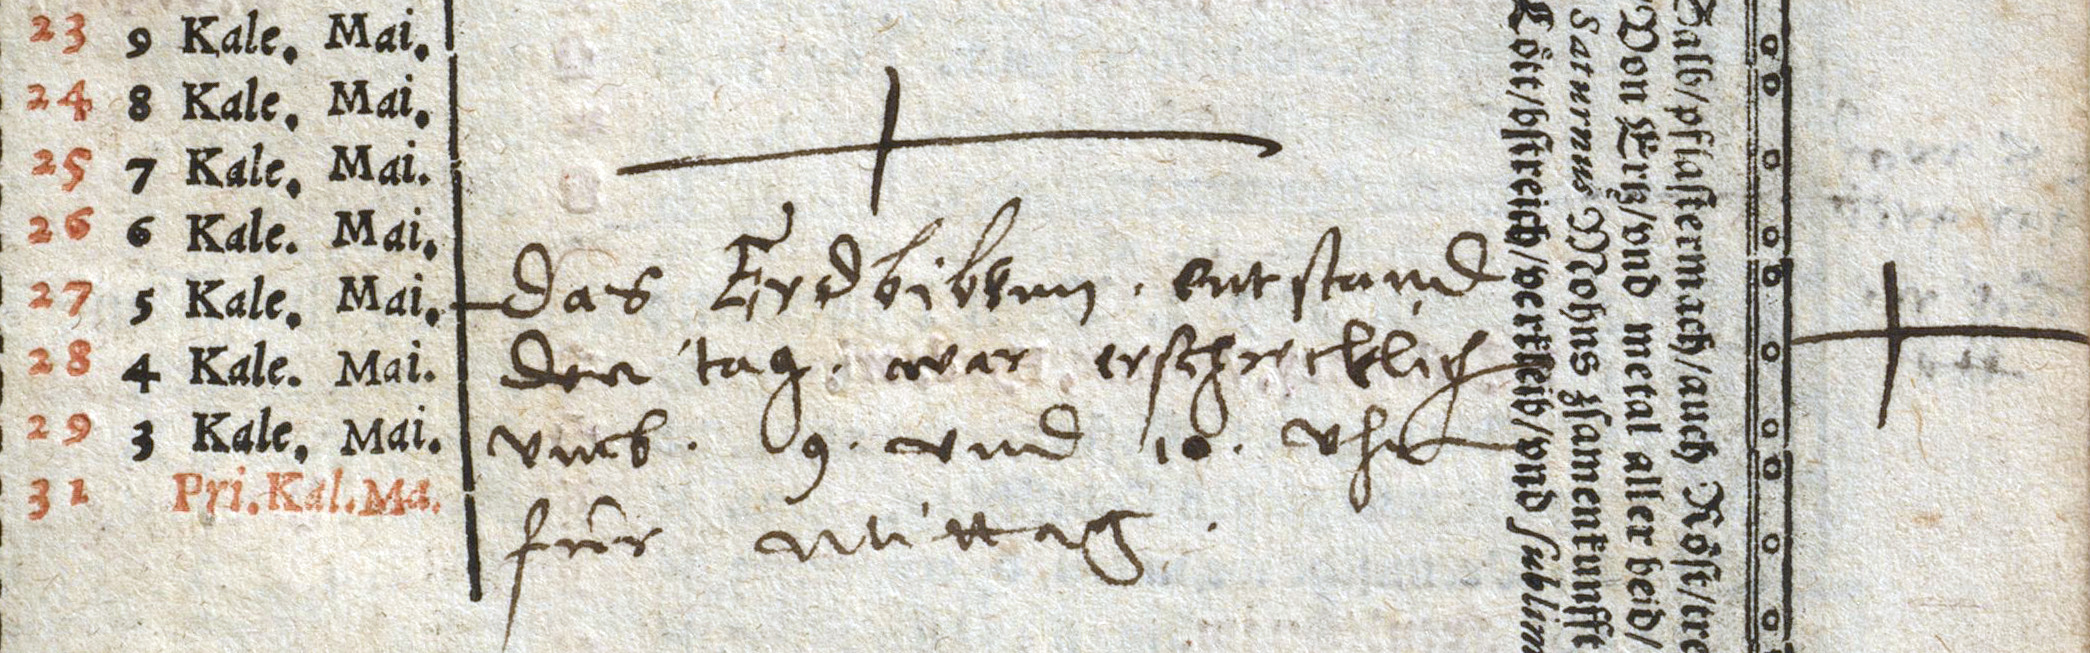 23 9 Kale. Mai.
24 8 Kale. Mai.
25 7 Kale. Mai.
26 6 Kale. Mai.
27 5 Kale. Mai.
28 4 Kale. Mai.
29 3 Kale. Mai.
31 Pri. Kal. Ma.
Das Erdbibem . entstand
den tag . war erschrecklich
vmb . 9 . vnd 10 . vhr
fur Mittag .
Salb/pflastermach/auch Röst/tre
Von Ertz/vnd metal aller beid/
Saturnus Mohns zsamenkunfft
Lött/bstreich/verkleib/vnd sublim